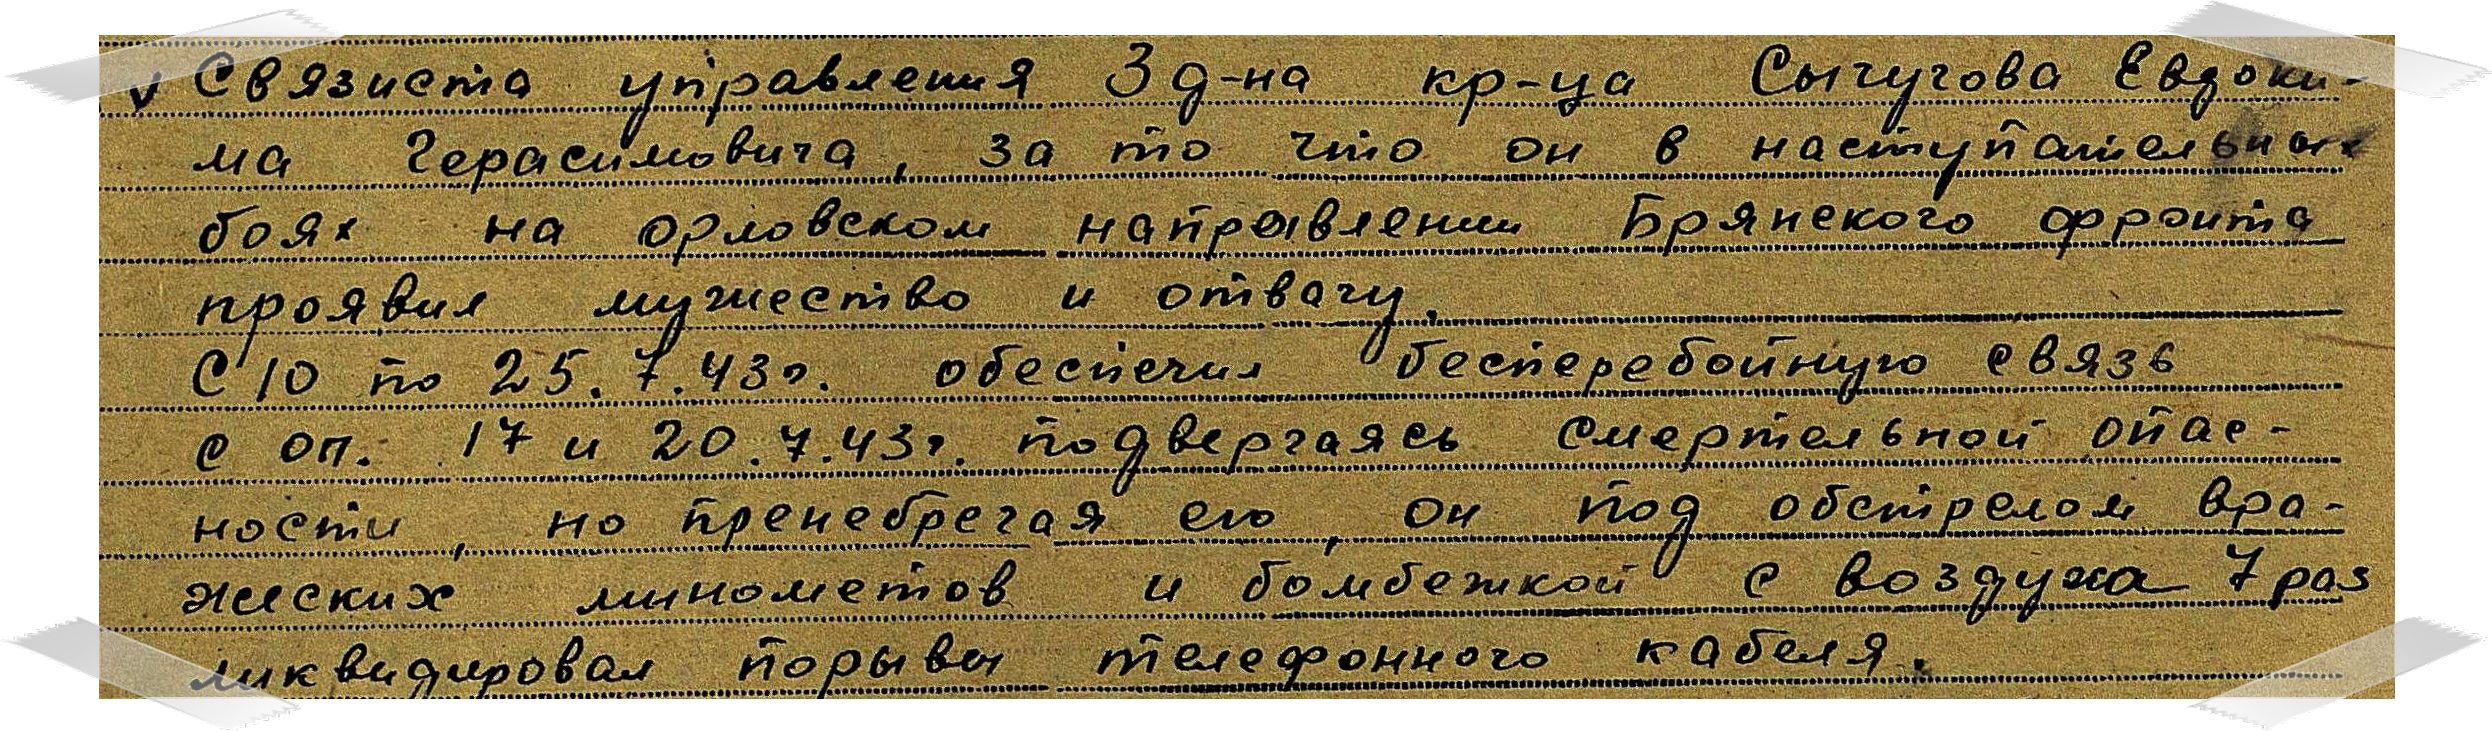 ✓ Связиста управления 3 д-на кр-ца Сычугова Евдоки-
ма Герасимовича, за то что он в наступательных
боях на орловском направлении Брянского фронта
проявил мужество и отвагу.
С 10 по 25.7.43г. обеспечил бесперебойную связь
с оп. 17 и 20.7.43г. подвергаясь смертельной опас-
ности, но пренебрегая ею, он под обстрелом вра-
жеских минометов и бомбежкой с воздуха 7 раз
ликвидировал порывы телефонного кабеля.